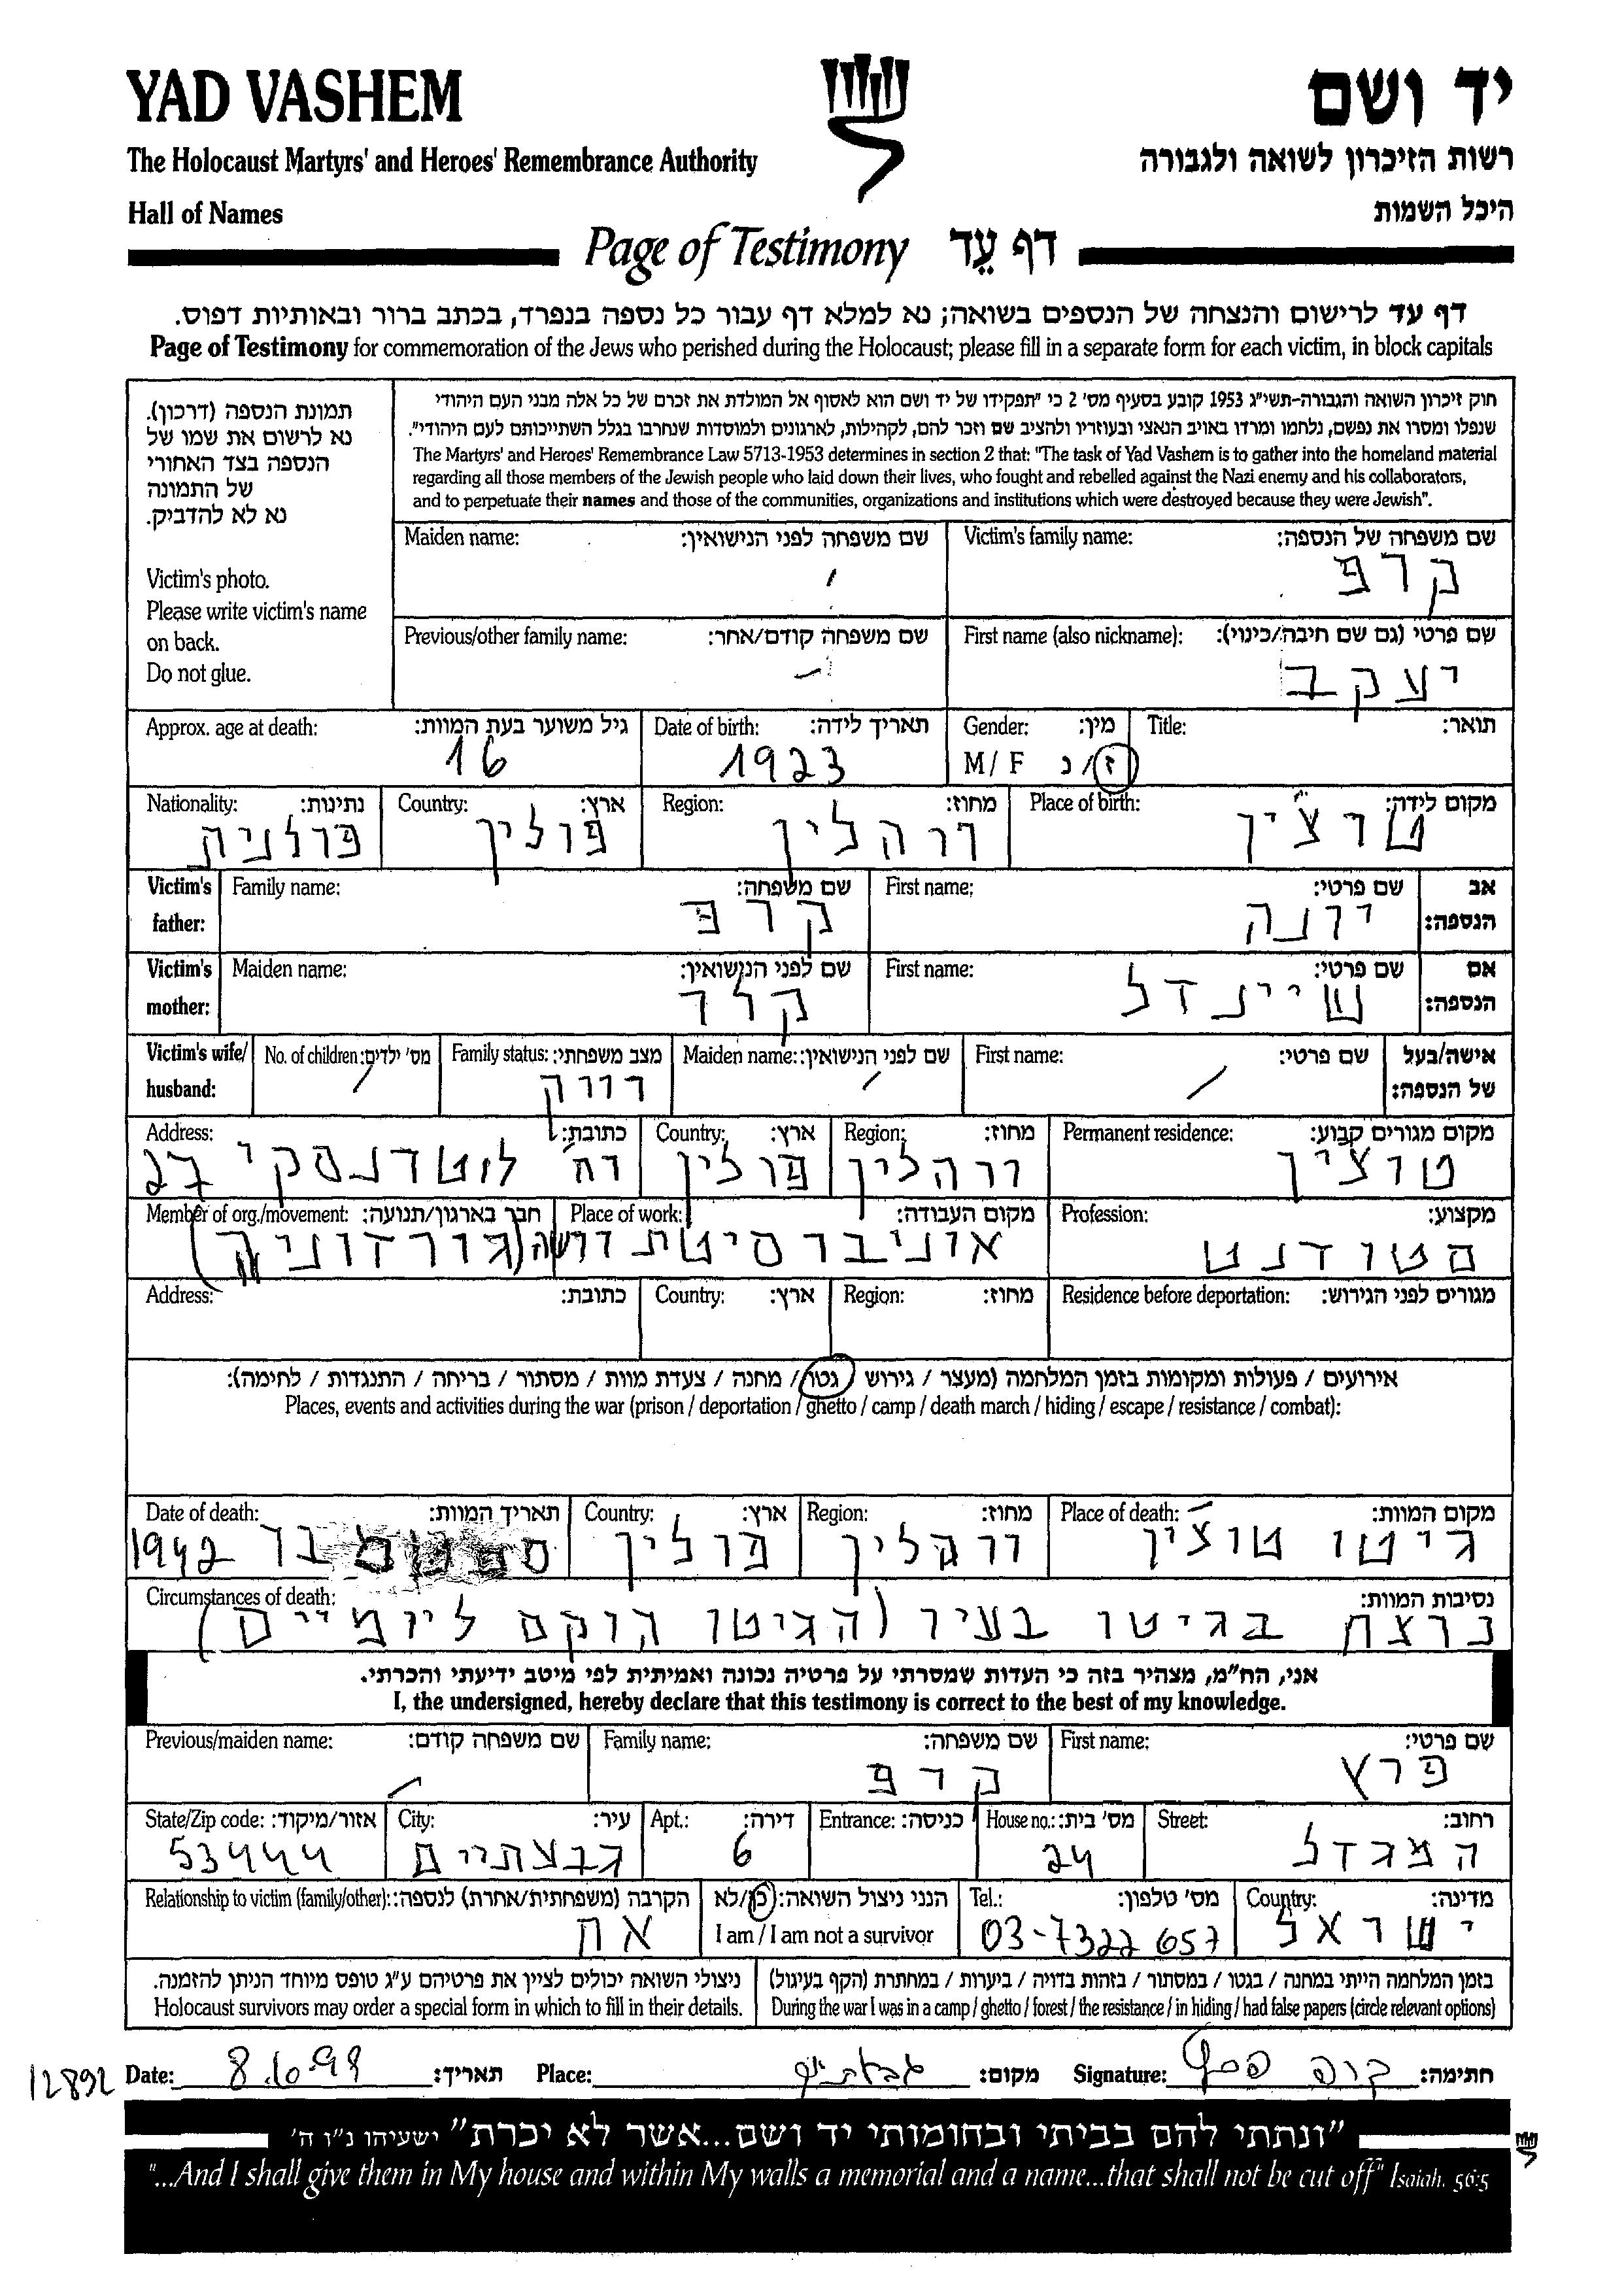 YAD VASHEM
יד ושם
The Holocaust Martyrs' and Heroes' Remembrance Authority
רשות הזיכרון לשואה ולגבורה
Hall of Names
היכל השמות
Page of Testimony דף עֵד
דף עד לרישום והנצחה של הנספים בשואה; נא למלא דף עבור כל נספה בנפרד, בכתב ברור ובאותיות דפוס.
Page of Testimony for commemoration of the Jews who perished during the Holocaust; please fill in a separate form for each victim, in block capitals
תמונת הנספה (דרכון).
נא לרשום את שמו של
הנספה בצד האחורי
של התמונה
נא לא להדביק.
Victim's photo.
Please write victim's name
on back.
Do not glue.
חוק זיכרון השואה והגבורה-תשי"ג 1953 קובע בסעיף מס' 2 כי "תפקידו של יד ושם הוא לאסוף אל המולדת את זכרם של כל אלה מבני העם היהודי
שנפלו ומסרו את נפשם, נלחמו ומרדו באויב הנאצי ובעוזריו ולהציב שם וזכר להם, לקהילות, לארגונים ולמוסדות שנחרבו בגלל השתייכותם לעם היהודי".
The Martyrs' and Heroes' Remembrance Law 5713-1953 determines in section 2 that: "The task of Yad Vashem is to gather into the homeland material
regarding all those members of the Jewish people who laid down their lives, who fought and rebelled against the Nazi enemy and his collaborators,
and to perpetuate their names and those of the communities, organizations and institutions which were destroyed because they were Jewish".
Victim's family name: שם משפחה של הנספה:
קרפ
Maiden name: שם משפחה לפני הנישואין:
First name (also nickname): שם פרטי (גם שם חיבה/כינוי):
יעקב
Previous/other family name: שם משפחה קודם/אחר:
Title: תואר:
Gender: מין:
M/ F ז/נ
Date of birth: תאריך לידה:
1923
Approx. age at death: גיל משוער בעת המוות:
16
Place of birth: מקום לידה:
טוצ'ין
Region: מחוז:
ווהלין
Country: ארץ:
פולין
Nationality: נתינות:
פולנית
Victim's father: אב הנספה:
First name: שם פרטי:
יונה
Family name: שם משפחה:
קרפ
Victim's mother: אם הנספה:
First name: שם פרטי:
שיינדל
Maiden name: שם לפני הנישואין:
Victim's wife/ husband: אישה/בעל של הנספה:
First name: שם פרטי:
Maiden name: שם לפני הנישואין:
Family status: מצב משפחתי:
רווק
No. of children: מס' ילדים:
Permanent residence: מקום מגורים קבוע:
טוצ'ין
Region: מחוז:
ווהלין
Country: ארץ:
פולין
Address: כתובת:
רח' 27
Profession: מקצוע:
סטודנט
Place of work: מקום העבודה:
אוניברסיטת ורשה
Member of org./movement: חבר בארגון/תנועה:
(גורדוניה)
Residence before deportation: מגורים לפני הגירוש:
Region: מחוז:
Country: ארץ:
Address: כתובת:
אירועים / פעולות ומקומות בזמן המלחמה (מעצר / גירוש / גטו / מחנה / צעדת מוות / מסתור / בריחה / התנגדות / לחימה):
Places, events and activities during the war (prison / deportation / ghetto / camp / death march / hiding / escape / resistance / combat):
Place of death: מקום המוות:
גיטו טוצ'ין
Region: מחוז:
ווהלין
Country: ארץ:
פולין
Date of death: תאריך המוות:
ספטמבר 1942
Circumstances of death: נסיבות המוות:
נרצח בגיטו בעיר (הגיטו הוקם ליומיים)
אני, הח"מ, מצהיר בזה כי העדות שמסרתי על פרטיה נכונה ואמיתית לפי מיטב ידיעתי והכרתי.
I, the undersigned, hereby declare that this testimony is correct to the best of my knowledge.
First name: שם פרטי:
פרץ
Family name: שם משפחה:
קרפ
Previous/maiden name: שם משפחה קודם:
Street: רחוב:
המגדל
House no.: מס' בית:
24
Entrance: כניסה:
Apt.: דירה:
6
City: עיר:
גבעתיים
State/Zip code: אזור/מיקוד:
53444
Country: מדינה:
ישראל
Tel.: מס' טלפון:
03-7322657
הנני ניצול השואה: כן/לא
I am / I am not a survivor
Relationship to victim (family/other): הקרבה (משפחתית/אחרת) לנספה:
אח
בזמן המלחמה הייתי במחנה / בגטו / במסתור / בזהות בדויה / ביערות / במחתרת (הקף בעיגול)
During the war I was in a camp / ghetto / forest / the resistance / in hiding / had false papers (circle relevant options)
ניצולי השואה יכולים לציין את פרטיהם ע"ג טופס מיוחד הניתן להזמנה.
Holocaust survivors may order a special form in which to fill in their details.
12892
Date: 8.10.98 תאריך:
Place: גבעתיים מקום:
Signature: קרפ פרץ חתימה:
"ונתתי להם בביתי ובחומותי יד ושם...אשר לא יכרת" ישעיהו נ"ו ה'
"...And I shall give them in My house and within My walls a memorial and a name...that shall not be cut off" Isaiah. 56:5